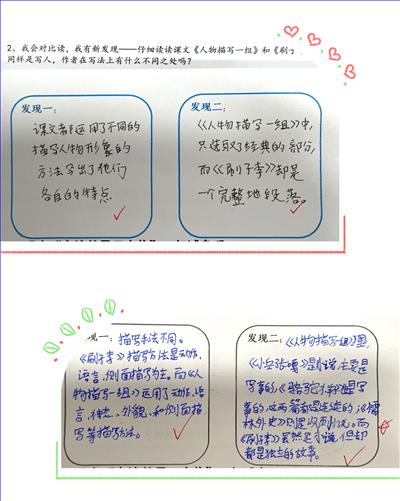 2、我会对比读，我有新发现——仔细读读课文《人物描写一组》和《刷子
同样是写人，作者在写法上有什么不同之处吗？
发现一：
课文都运用了不同的
描写人物形象的
方法写出了他们
各自的特点
发现二：
《人物描写一组》中，
只选取了经典的部分，
而《刷子李》却是
一个完整地段落。
现一：描写手法不同。
《刷子李》描写方法是动作、
语言、侧面描写为主。而《人
物描写一组》运用了动作、语
言、神态、外貌、和侧面描
写等描写方法。
发现二：《人物描写一组》里，
《小兵张嘎》是小说，主要是
写事的，《骆驼祥子》是写
事的，这两篇都是连续的，《儒
林外史》则是讽刺小说。而
《刷子李》虽然是小说，但却
都是独立的故事。